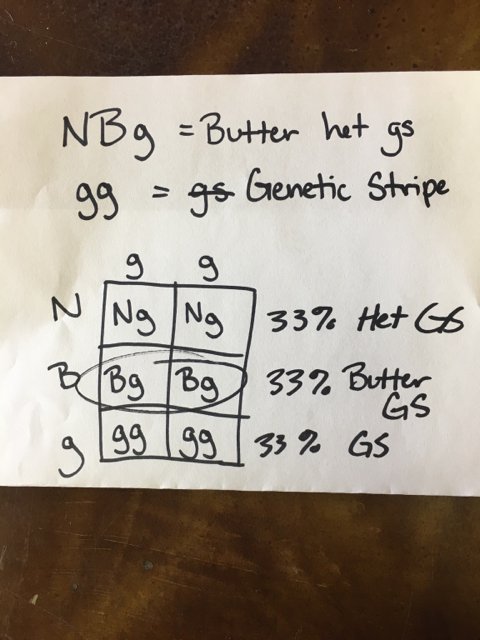 NBg = Butter het gs
gg = gs Genetic Stripe
g g
N Ng Ng 33% Het GS
B Bg Bg 33% Butter
GS
g gg gg 33% GS